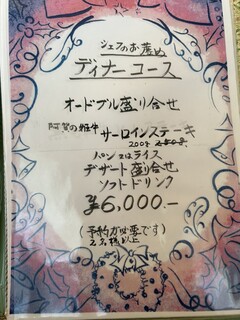 シェフのお薦め
ディナーコース
オードブル盛り合せ
阿賀の姫牛 サーロインステーキ
200g
パン又はライス
デザート盛り合せ
ソフトドリンク
¥6,000.-
(予約が必要です)
2名様以上